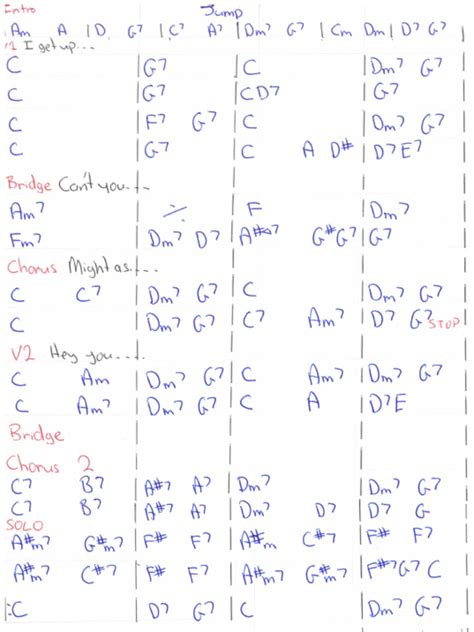 Intro Jump
Am A | D G7 | C7 A7 | Dm7 G7 | Cm Dm | D7 G7
V1 I get up...
C | G7 | C | Dm7 G7
C | G7 | CD7 | G7
C | F7 G7 | C | Dm7 G7
C | G7 | C A D# | D7 E7
Bridge Can't you...
Am7 ÷ | F | Dm7
Fm7 | Dm7 D7 | A#7 G#G7 | G7
Chorus Might as...
C C7 | Dm7 G7 | C | Dm7 G7
C | Dm7 G7 | C7 Am7 | D7 G7 STOP
V2 Hey you...
C Am | Dm7 G7 | C Am7 | Dm7 G7
C Am7 | Dm7 G7 | C A | D7E
Bridge
Chorus 2
C7 B7 | A#7 A7 | Dm7 | Dm7 G7
C7 B7 | A#7 A7 | Dm7 D7 | D7 G
SOLO
A#m7 G#m7 | F# F7 | A#m C#7 | F# F7
A#m7 C#7 | F# F7 | A#m7 G#m7 | F#7G7 C
:C | D7 G7 | C | Dm7 G7